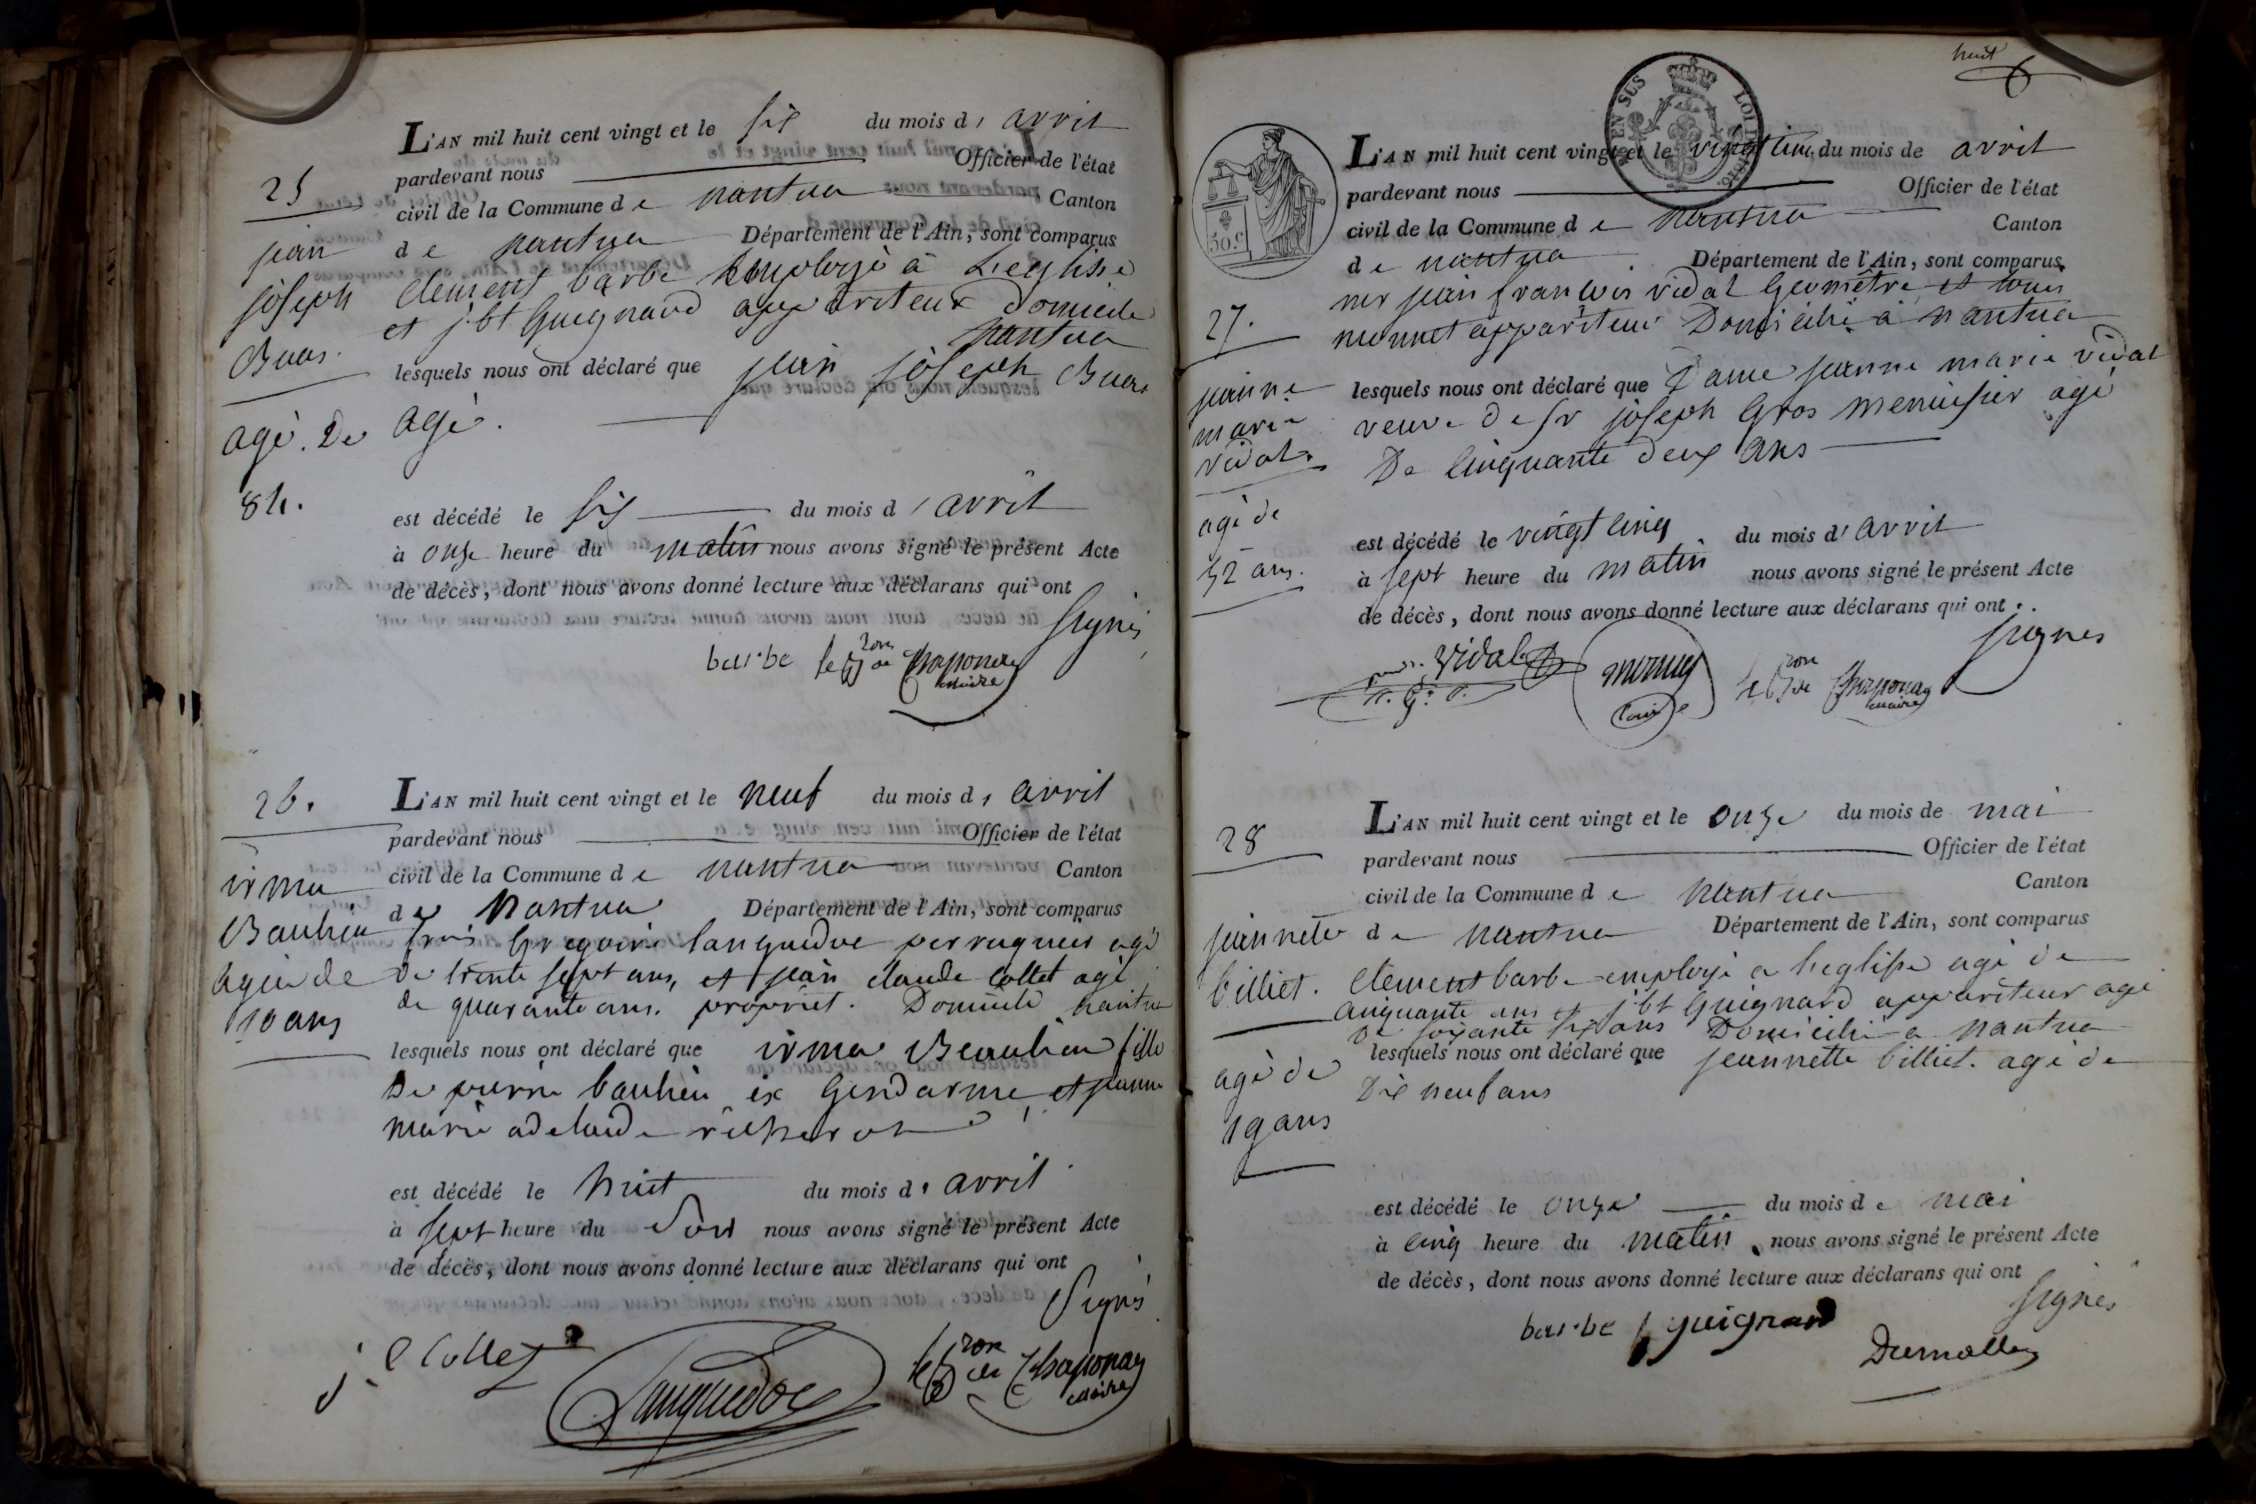 25
jean
joseph
Buas.
agé. De
84.
L'AN mil huit cent vingt et le six du mois d' avril
pardevant nous Officier de l'état
civil de la Commune d e nantua Canton
d e nantua Département de l'Ain, sont comparus
Clement barbe Employé à L'eglise
et j. bt Guignard appariteur Domicile
nantua
lesquels nous ont déclaré que jean joseph Buas
agé.
est décédé le six du mois d' avril
à onze heure du matin nous avons signé le présent Acte
de décès, dont nous avons donné lecture aux déclarans qui ont
signés
barbe le Bon de Chaponay
maire
26.
irma
Baulieu
agée de
10 ans
L'AN mil huit cent vingt et le neuf du mois d' avril
pardevant nous Officier de l'état
civil de la Commune d e nantua Canton
de Nantua Département de l'Ain, sont comparus
frois Gregoire languedoc perruquier agé
de trente sept ans, et jean claude Collet agé
de quarante ans. propriet. Domicilé nantua
lesquels nous ont déclaré que irma Beaulieu fille
De pierre baulieu ex Gendarme, et jeanne
marie adelaide
est décédé le huit du mois d' avril
à sept heure du Soir nous avons signé le présent Acte
de décès, dont nous avons donné lecture aux déclarans qui ont
Signés
j. C Collet
Languedoc
le Bon de Chaponay
maire
huit
EN SUS LOI DE 1816.
50.c
27.
jeanne
marie
vidal.
agé de
52 ans.
L'AN mil huit cent vingt et le vingt cinq du mois de avril
pardevant nous Officier de l'état
civil de la Commune d e nantua Canton
d e nantua Département de l'Ain, sont comparus
mr jean francois vidal Géomêtre et louis
monnet appariteur Domicilié à nantua
lesquels nous ont déclaré que Dame jeanne marie vidal
veuve de sr joseph Gros menuisier agé
De Cinquante deux ans
est décédé le vingt cinq du mois d' avril
à sept heure du matin nous avons signé le présent Acte
de décès, dont nous avons donné lecture aux déclarans qui ont
signés
Vidal
monnet
Louis
le Bon de Chaponay
maire
28
jeannete
billiet.
agé de
19 ans
L'AN mil huit cent vingt et le onze du mois de mai
pardevant nous Officier de l'état
civil de la Commune d e nantua Canton
d e nantua Département de l'Ain, sont comparus
Clement barbe employé a leglise agé de
cinquante ans et j. bt Guignard appariteur agé
de soixante six ans Domicilié a nantua
lesquels nous ont déclaré que jeannette billiet. agé de
Dix neuf ans
est décédé le onze du mois d e mai
à cinq heure du matin nous avons signé le présent Acte
de décès, dont nous avons donné lecture aux déclarans qui ont
signés
barbe guignard